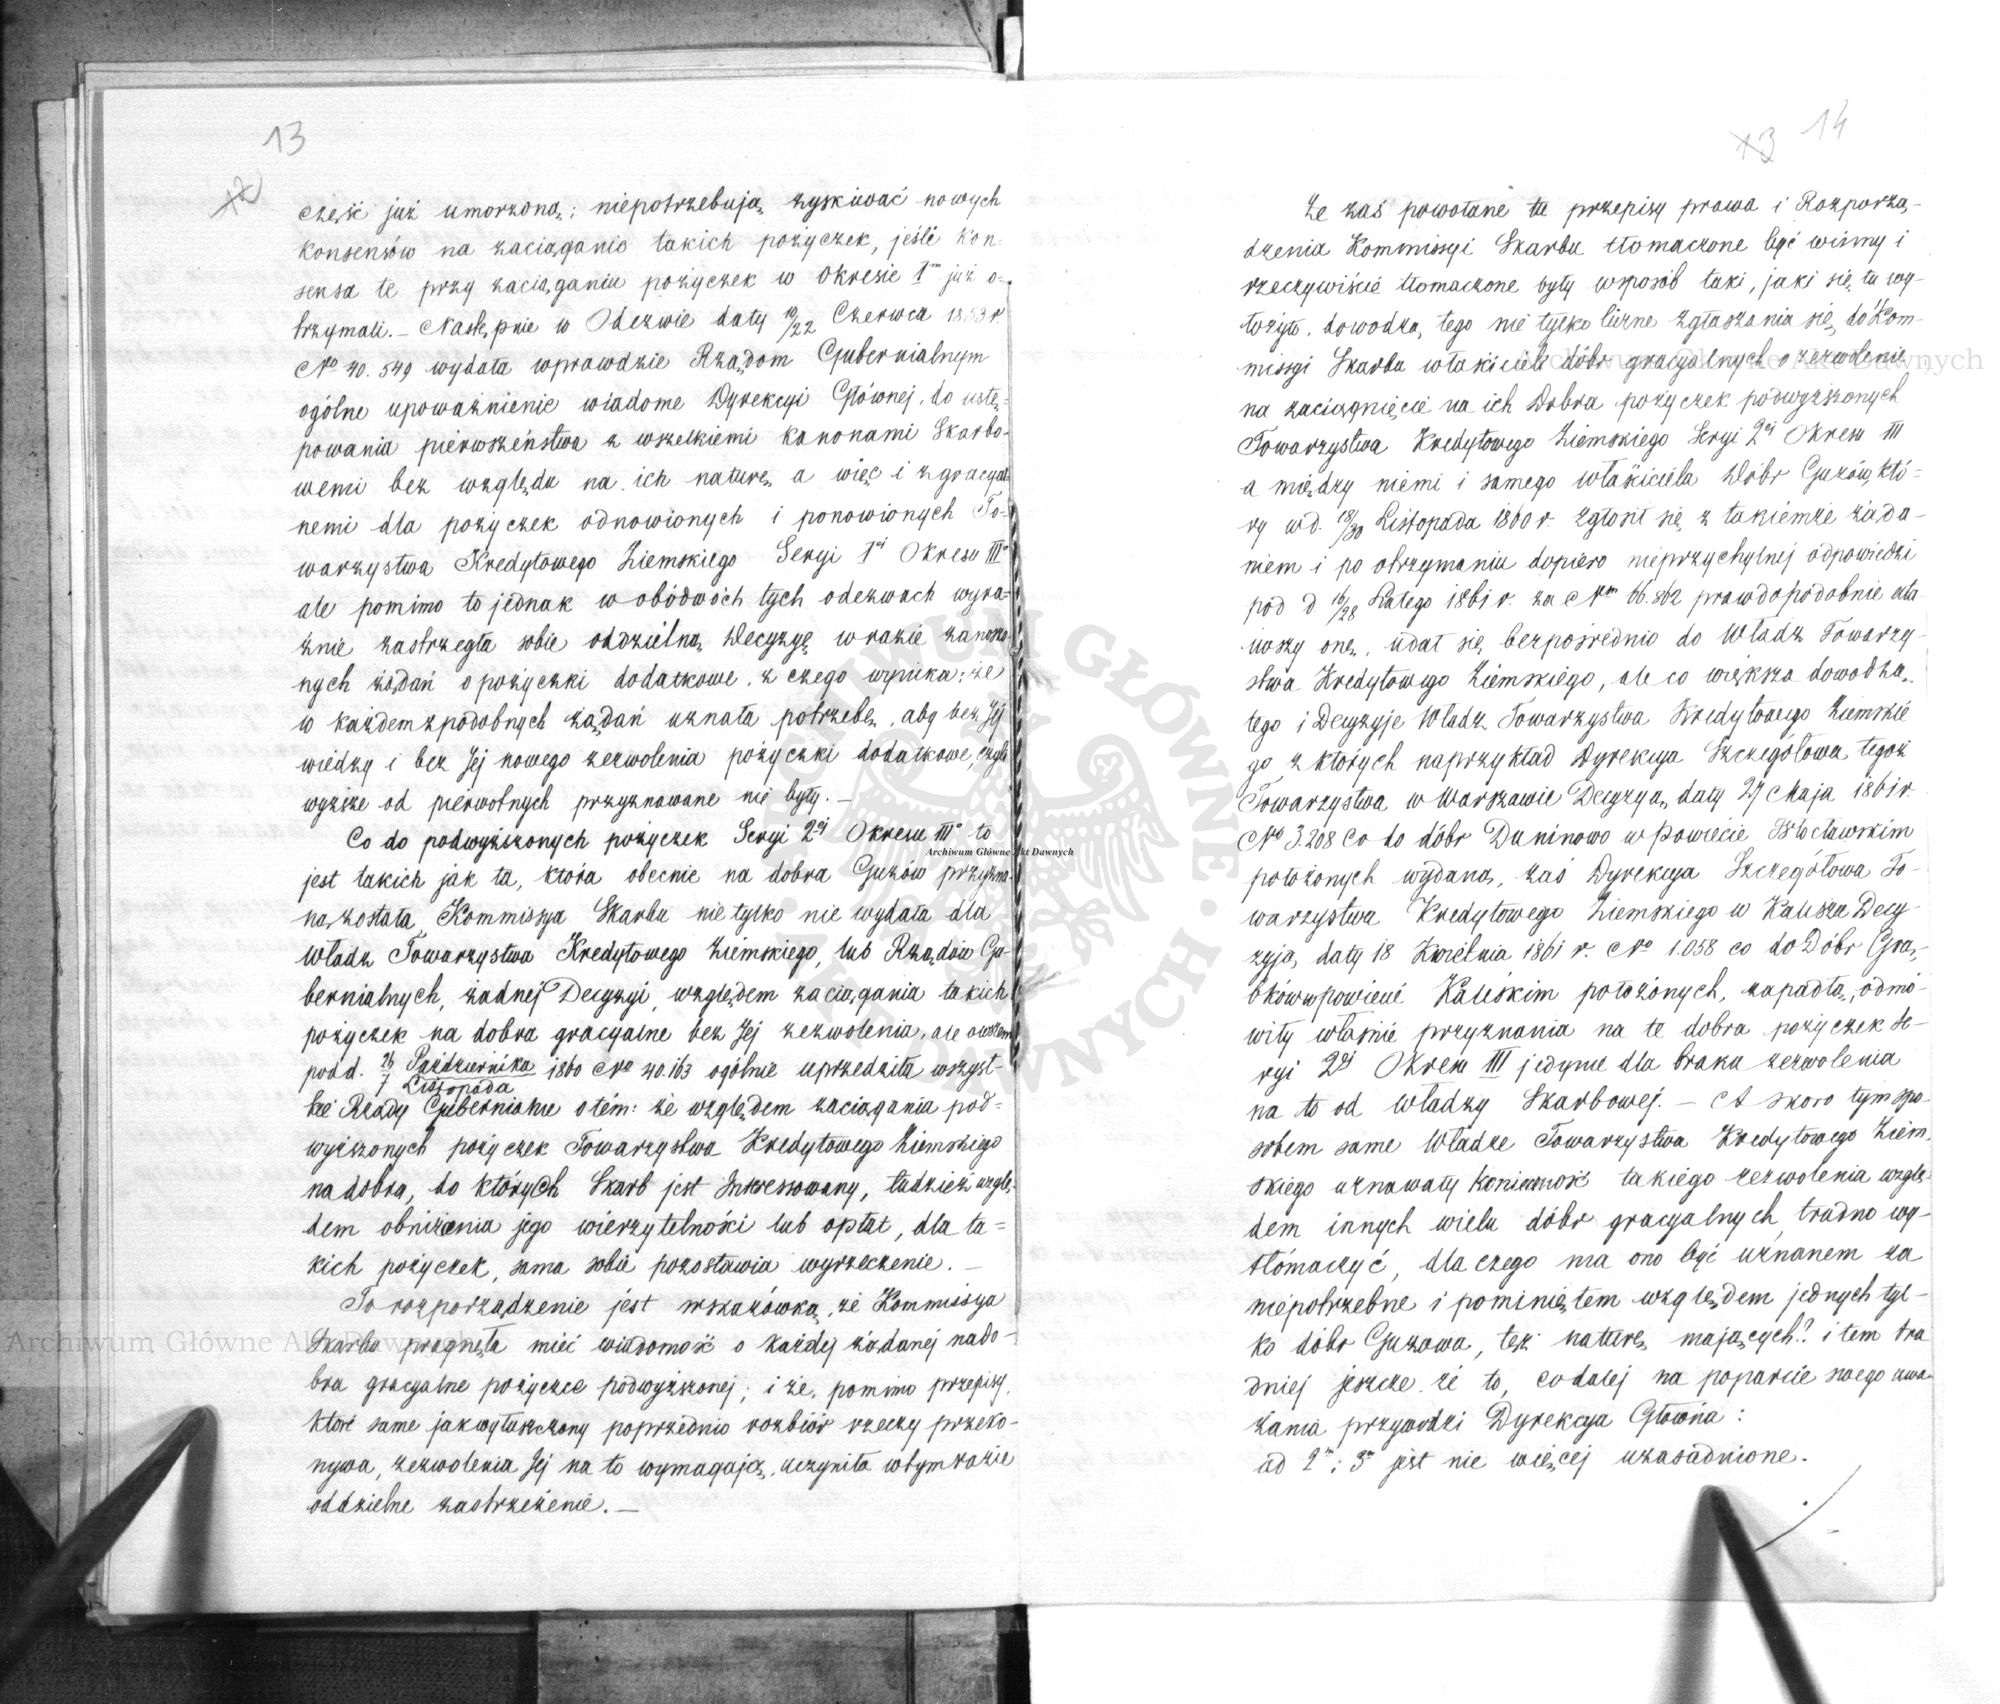 13
12
część już umorzoną; niepotrzebują zyskiwać nowych
konsensów na zaciąganie takich pożyczek, jeśli kon-
sensa te przy zaciąganiu pożyczek w Okresie Im już o-
trzymali. – Następnie w Odezwie daty 10/22 Czerwca 1853 r.
No 40.549 wydała wprawdzie Rządom Gubernialnym
ogólne upoważnienie wiadome Dyrekcyi Głównej, do ustę-
powania pierwszeństwa z wszelkiemi kanonami Skarbo-
wemi bez względu na ich naturę a więc i z gracyal-
nemi dla pożyczek odnowionych i ponowionych To-
warzystwa Kredytowego Ziemskiego Seryi 1ej Okresu IIIo
ale pomimo to jednak w obódwóch tych odezwach wyra-
źnie zastrzegła sobie oddzielną Decyzyę w razie zanoszo-
nych żądań o pożyczki dodatkowe, z czego wynika: że
w każdem z podobnych żądań uznała potrzebę, aby bez Jéj
wiedzy i bez Jéj nowego zezwolenia pożyczki dodatkowe, czyli
wyższe od pierwotnych przyznawane nie były. –
Co do podwyższonych pożyczek Seryi 2ej Okresu IIIo to
jest takich jak ta, która obecnie na dobra Guzów przyzna-
ną została, Kommissya Skarbu nie tylko nie wydała dla
Władz Towarzystwa Kredytowego Ziemskiego, lub Rządów Gu-
bernialnych, żadnej Decyzyi, względem zaciągania takich
pożyczek na dobra gracyalne bez Jéj zezwolenia, ale owszem
pod d. 26 Października / 7 Listopada 1860 No 40.163 ogólnie uprzedziła wszyst-
kie Rządy Gubernialne o tém: że względem zaciągania pod-
wyższonych pożyczek Towarzystwa Kredytowego Ziemskiego
na dobra, do których Skarb jest Interessowany, tudzież wzglę-
dem obniżenia jego wierzytelności lub opłat, dla ta-
kich pożyczek, sama sobie pozostawia wyrzeczenie. –
To rozporządzenie jest wskazówką, że Kommissya
Skarbu pragnęła mieć wiadomość o każdej żądanej na do-
bra gracyalne pożyczce podwyższonej; i że, pomimo przepisy,
które same jak wyłuszczony poprzednio rozbiór rzeczy przeko-
nywa, zezwolenia Jéj na to wymagają, uczyniła w tym razie
oddzielne zastrzeżenie. –
13 14
Że zaś powołane tu przepisy prawa i Rozporzą-
dzenia Kommissyi Skarbu tłomaczone być winny i
rzeczywiście tłomaczone były w sposób taki, jaki się tu wy-
łożyło, dowodzą tego nie tylko liczne zgłaszania się do Kom-
missyi Skarbu właścicieli dóbr gracyalnych o zezwolenie
na zaciągnięcie na ich Dobra pożyczek podwyższonych
Towarzystwa Kredytowego Ziemskiego Seryi 2ej Okresu III
a między niemi i samego właściciela Dóbr Guzów, któ-
ry w d. 18/30 Listopada 1860 r. zgłosił się z takiemże żąda-
niem i po otrzymaniu dopiero nieprzychylnej odpowiedzi
pod d 16/28 Lutego 1861 r. za Nrm 66.862 prawdopodobnie uta-
iwszy onę, udał się bezpośrednio do Władz Towarzy-
stwa Kredytowego Ziemskiego, ale co większa dowodzą
tego i Decyzyje Władz Towarzystwa Kredytowego Ziemskie
go z których naprzykład Dyrekcya Szczegółowa tegoż
Towarzystwa w Warszawie Decyzyą daty 27 Maja 1861 r.
No 3.208 co do dóbr Duninowo w Powiecie Włocławskim
położonych wydaną, zaś Dyrekcya Szczegółowa To-
warzystwa Kredytowego Ziemskiego w Kaliszu Decy-
zyją daty 18 Kwietnia 1861 r. No 1.058 co do Dóbr Grą-
bków w powiecie Kaliskim położonych, zapadłą, odmó-
wiły właśnie przyznania na te dobra pożyczek Se-
ryi 2ej Okresu III jedynie dla braku zezwolenia
na to od Władzy Skarbowej. – A skoro tym spo-
sobem same Władze Towarzystwa Kredytowego Ziem-
skiego uznawały konieczność takiego zezwolenia wzglę-
dem innych wielu dóbr gracyalnych, trudno wy-
tłómaczyć, dla czego ma ono być uznanem za
niepotrzebne i pominiętem względem jednych tyl-
ko dóbr Guzowa, też naturę mających? i tem tru
dniej jeszcze że to, co dalej na poparcie swego uwa-
żania przywodzi Dyrekcya Główna:
ad 2m i 3m jest nie więcej uzasadnione.
Archiwum Główne Akt Dawnych
Archiwum Główne Akt Dawnych
Archiwum Główne Akt Dawnych
ARCHIWUM GŁÓWNE AKT DAWNYCH